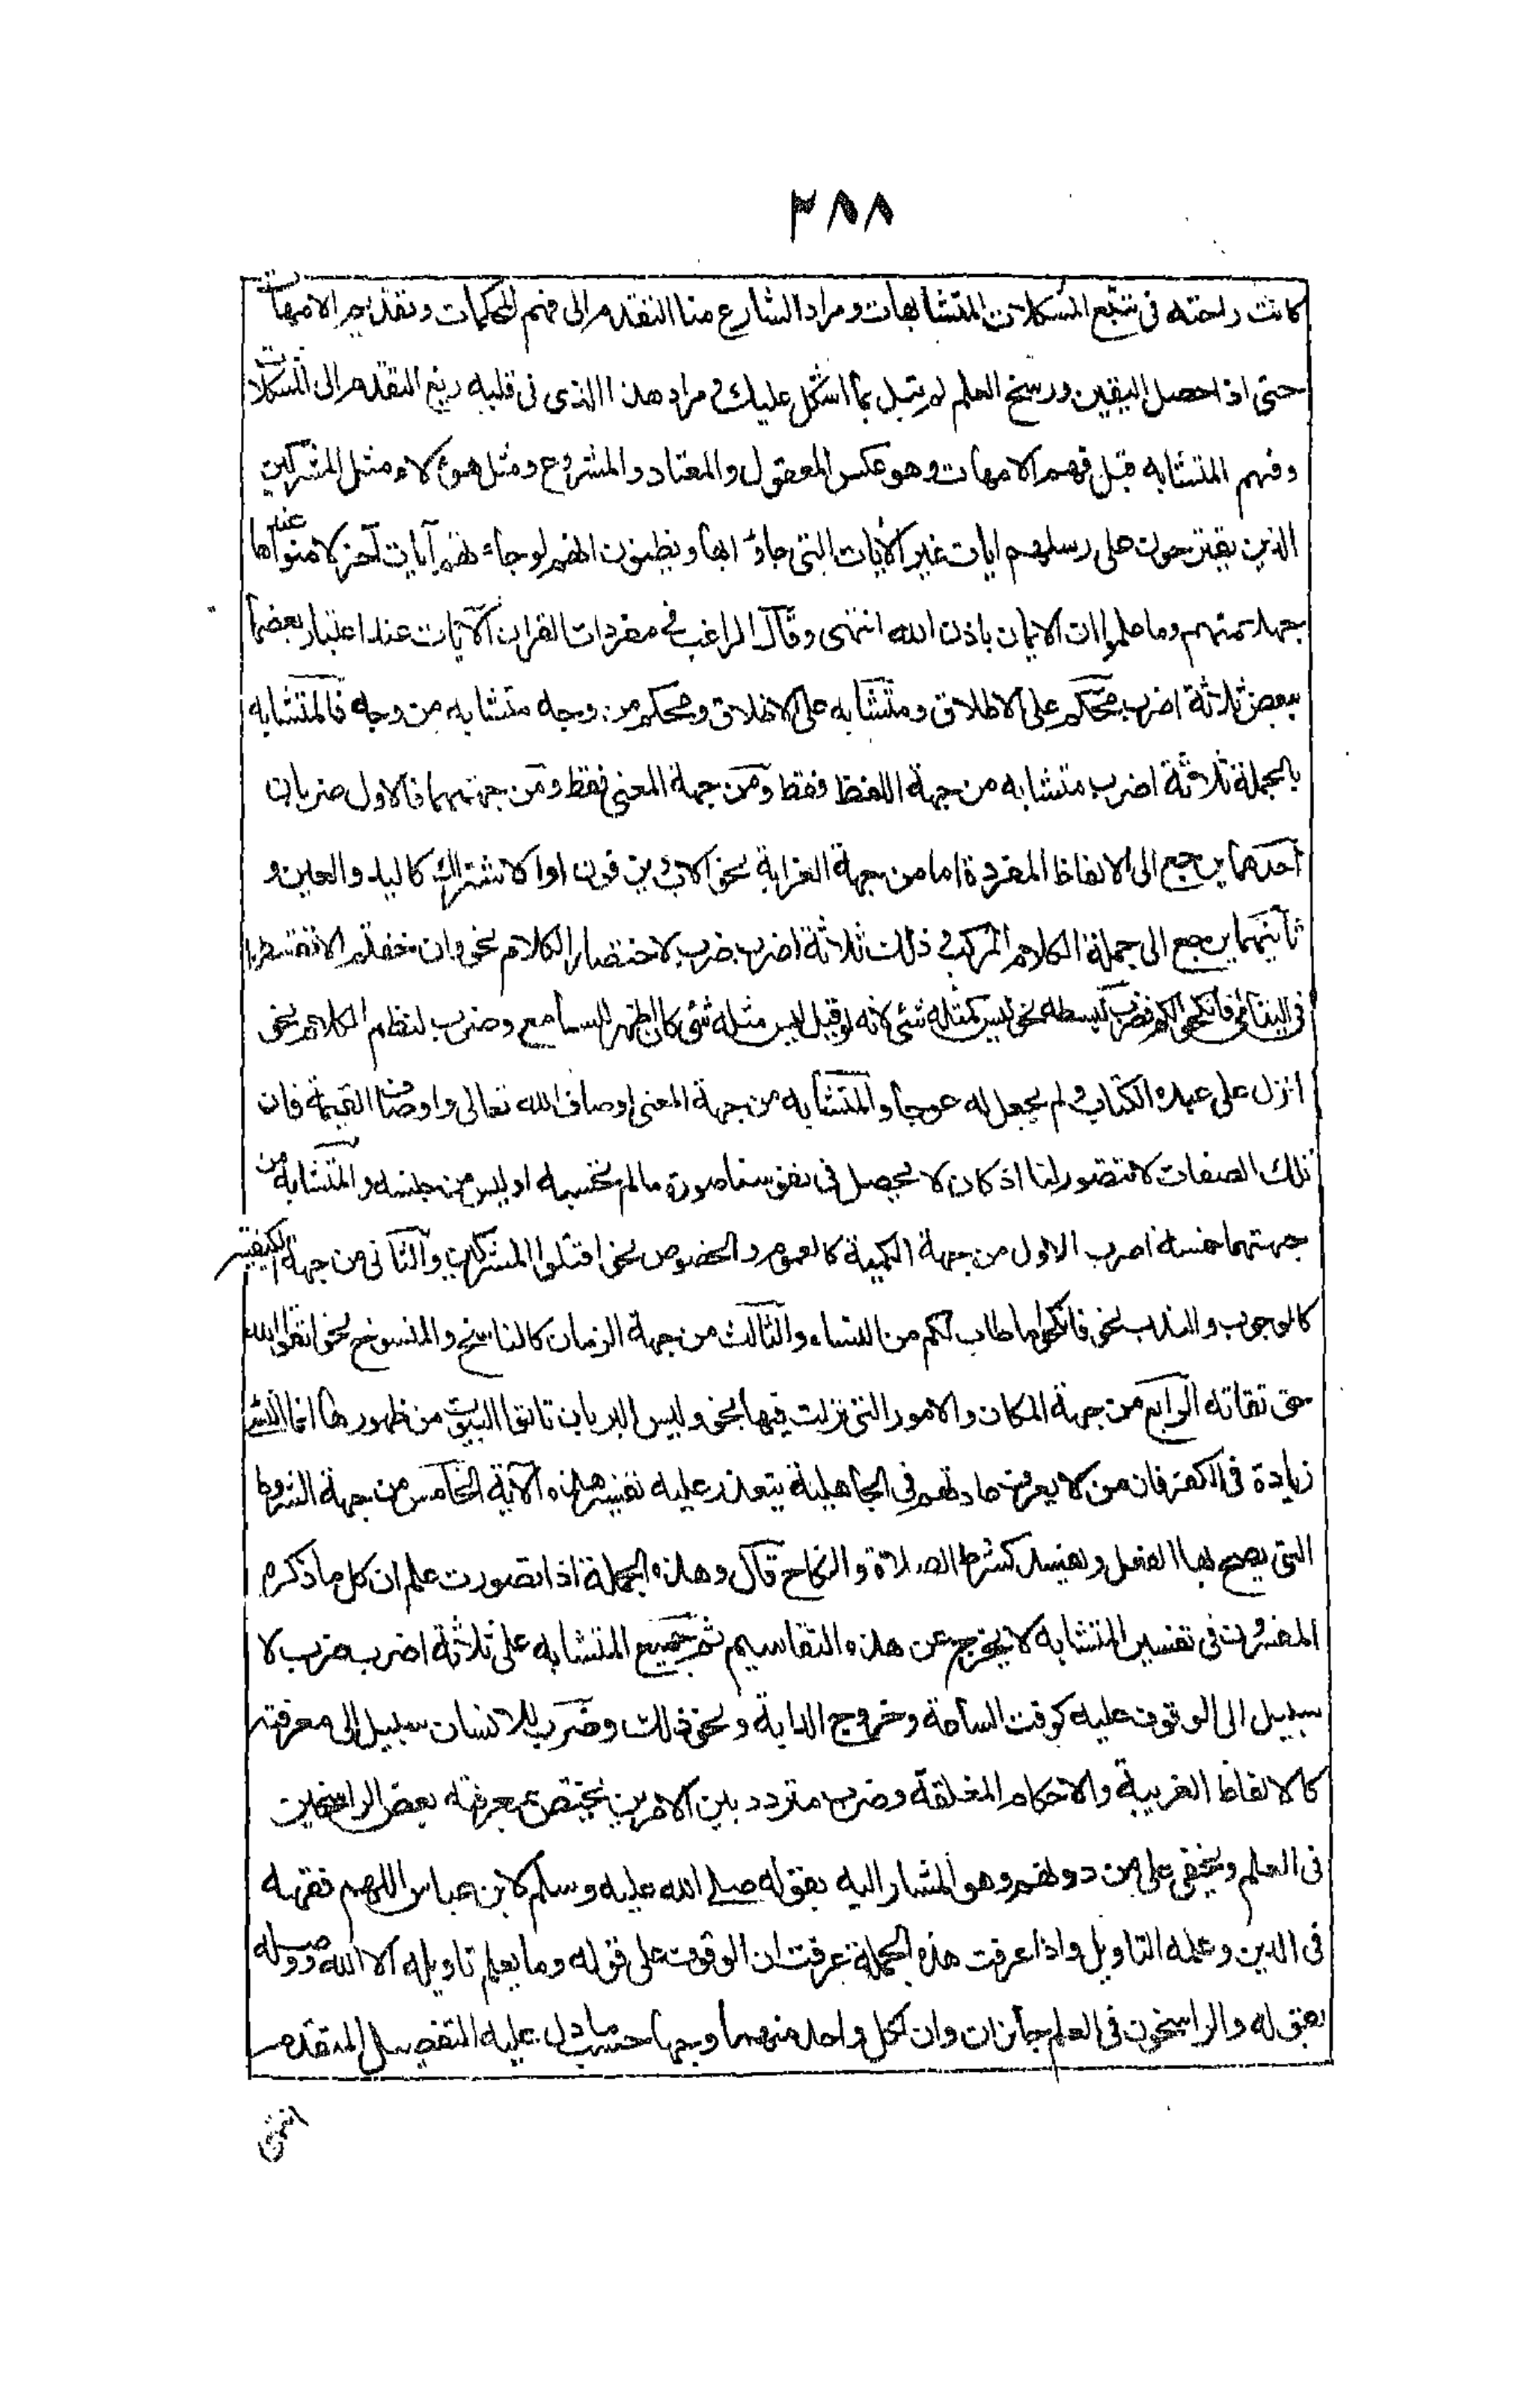 ٣٨٨
كانت راحته فى تتبع المشكلات المتشابهات ومراد الشارع منها التقدم الى فهم المحكمات وتقديم الامهات
حتى اذا حصل اليقين ورسخ العلم لم تبل بما اشكل عليك ومراد هذا الذى فى قلبه زيغ التقدم الى المشكلات
وفهم المتشابه قبل فهم الامهات وهو عكس المعقول والمعتاد والمشروع ومثل هؤلاء مثل المشركين
الذين يقترحون على رسلهم ايات غير الآيات التى جاؤا بها ويظنون انهم لو جاءتهم آيات آخر لامنوا عندها
جهلا منهم وما علموا ان الايمان باذن الله انتهى وقال الراغب فى مفردات القران الآيات عند اعتبار بعضها
ببعض ثلاثة اضرب محكم على الاطلاق ومتشابه على الاطلاق ومحكم من وجه متشابه من وجه فالمتشابه
بالجملة ثلاثة اضرب متشابه من جهة اللفظ فقط ومن جهة المعنى فقط ومن جهتهما فالاول ضربان
احدهما يرجع الى الالفاظ المفردة اما من جهة الغرابة نحو الاب ويزفون اوالاشتراك كاليد والعين و
ثانيهما يرجع الى جملة الكلام المركب وذلك ثلاثة اضرب ضرب لاختصار الكلام نحو وان خفتم الا تقسطوا
فى اليتامى فانكحوا الكم وضرب لبسطه نحو ليس كمثله شئ لانه لو قيل ليس مثله شئ كان اظهر للسامع وضرب لنظم الكلام نحو
انزل على عبده الكتاب ولم يجعل له عوجا والمتشابه من جهة المعنى اوصاف الله تعالى واوصاف القيمة فان
تلك الصفات لا تتصور لنا اذ كان لا يحصل فى نفوسنا صورة ما لم نحسبه او ليس من جنسه والمتشابه من
جهتهما خمسة اضرب الاول من جهة الكمية كالعموم والخصوص نحو اقتلوا المشركين والثانى من جهة الكيفية
كالوجوب والندب نحو فانكحوا ما طاب لكم من النساء والثالث من جهة الزمان كالناسخ والمنسوخ نحو اتقوا الله
حق تقاته الرابع من جهة المكان والامور التى نزلت فيها نحو وليس البر بان تاتوا البيوت من ظهورها انما النسئ
زيادة فى الكفر فان من لا يعرف عادتهم فى الجاهلية يتعذر عليه تفسير هذه الآية الخامس من جهة الشروط
التى يصح بها الفعل ويفسد كشرط الصلاة والنكاح قال وهذه الجملة اذا تصورت علم ان كل ما ذكره
المفسرون فى تفسير المتشابه لا يخرج عن هذه التقاسيم ثم جميع المتشابه على ثلاثة اضرب ضرب لا
سبيل الى الوقوف عليه كوقت الساعة وخروج الدابة ونحو ذلك وضرب للانسان سبيل الى معرفته
كالالفاظ الغريبة والاحكام المغلقة وضرب متردد بين الامرين يختص بمعرفته بعض الراسخين
فى العلم ويخفى على من دونهم وهو المشار اليه بقوله صلى الله عليه وسلم لابن عباس اللهم فقهه
فى الدين وعلمه التاويل واذا عرفت هذه الجملة عرفت ان الوقوف على قوله وما يعلم تاويله الا الله ووصله
بقوله والراسخون فى العلم جائزان وان لكل واحد منهما وجها حسب ما دل عليه التفصيل المتقدم
انتهى